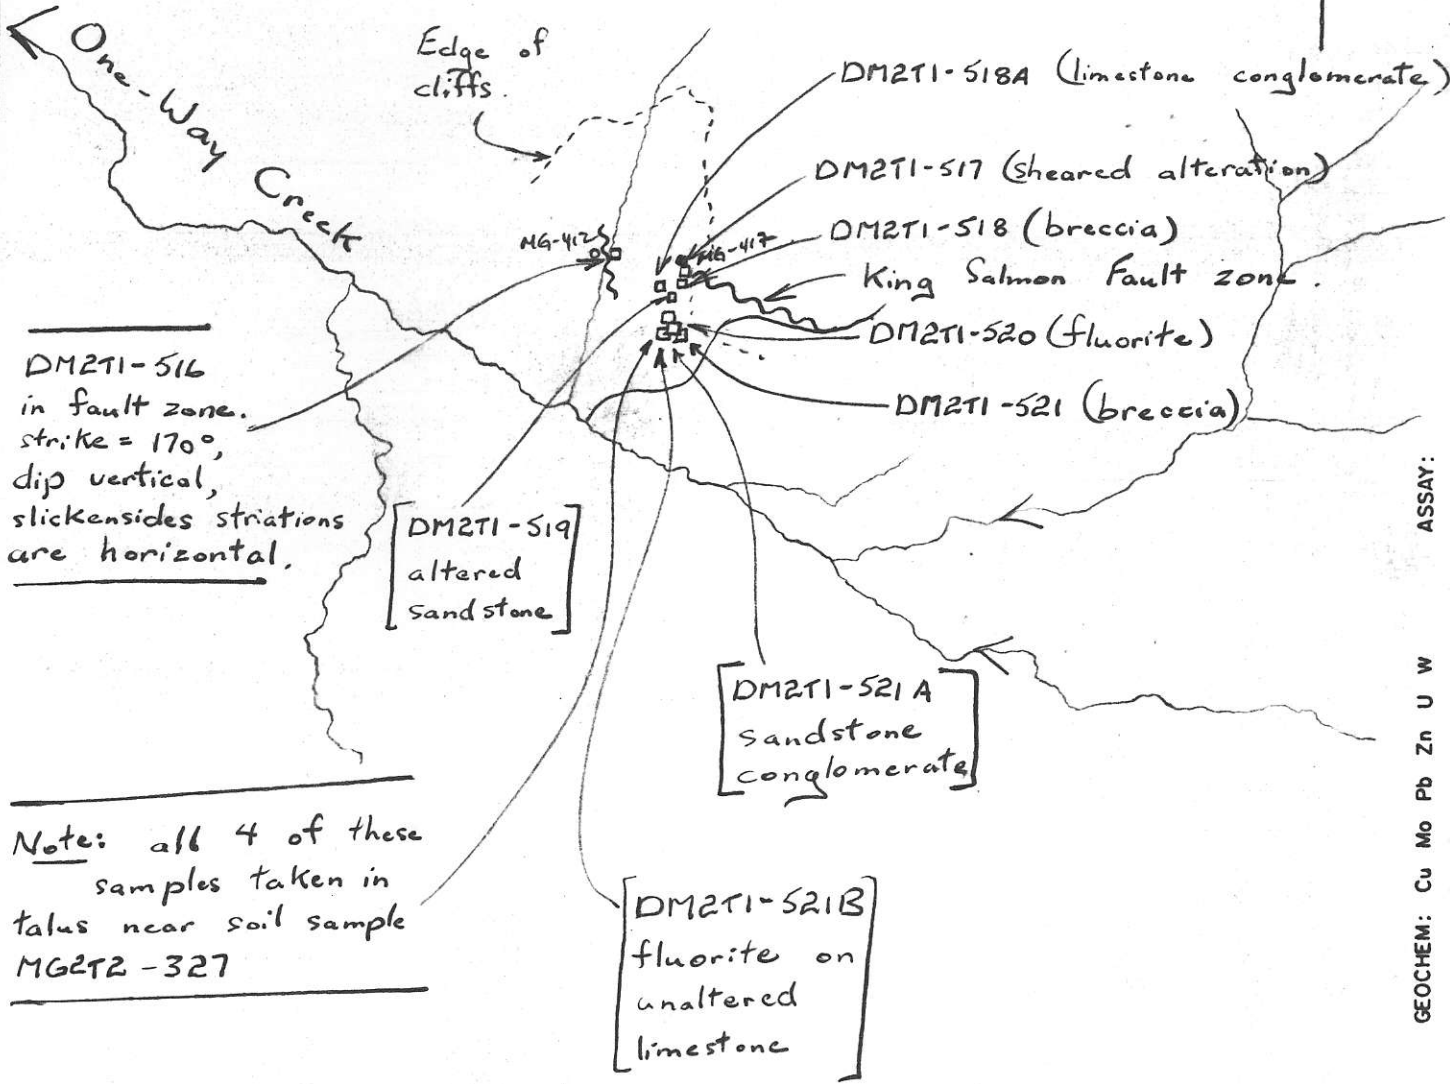 One-Way Creek
Edge of
cliffs.
DM2T1-518A (limestone conglomerate)
DM2T1-517 (sheared alteration)
DM2T1-518 (breccia)
MG-412
MG-417
King Salmon Fault zone.
DM2T1-520 (fluorite)
DM2T1-521 (breccia)
DM2T1-516
in fault zone.
strike = 170°,
dip vertical,
slickensides striations
are horizontal.
DM2T1-519
altered
sandstone
DM2T1-521A
sandstone
conglomerate
Note: all 4 of these
samples taken in
talus near soil sample
MG2T2-327
DM2T1-521B
fluorite on
unaltered
limestone
ASSAY:
GEOCHEM: Cu Mo Pb Zn U W